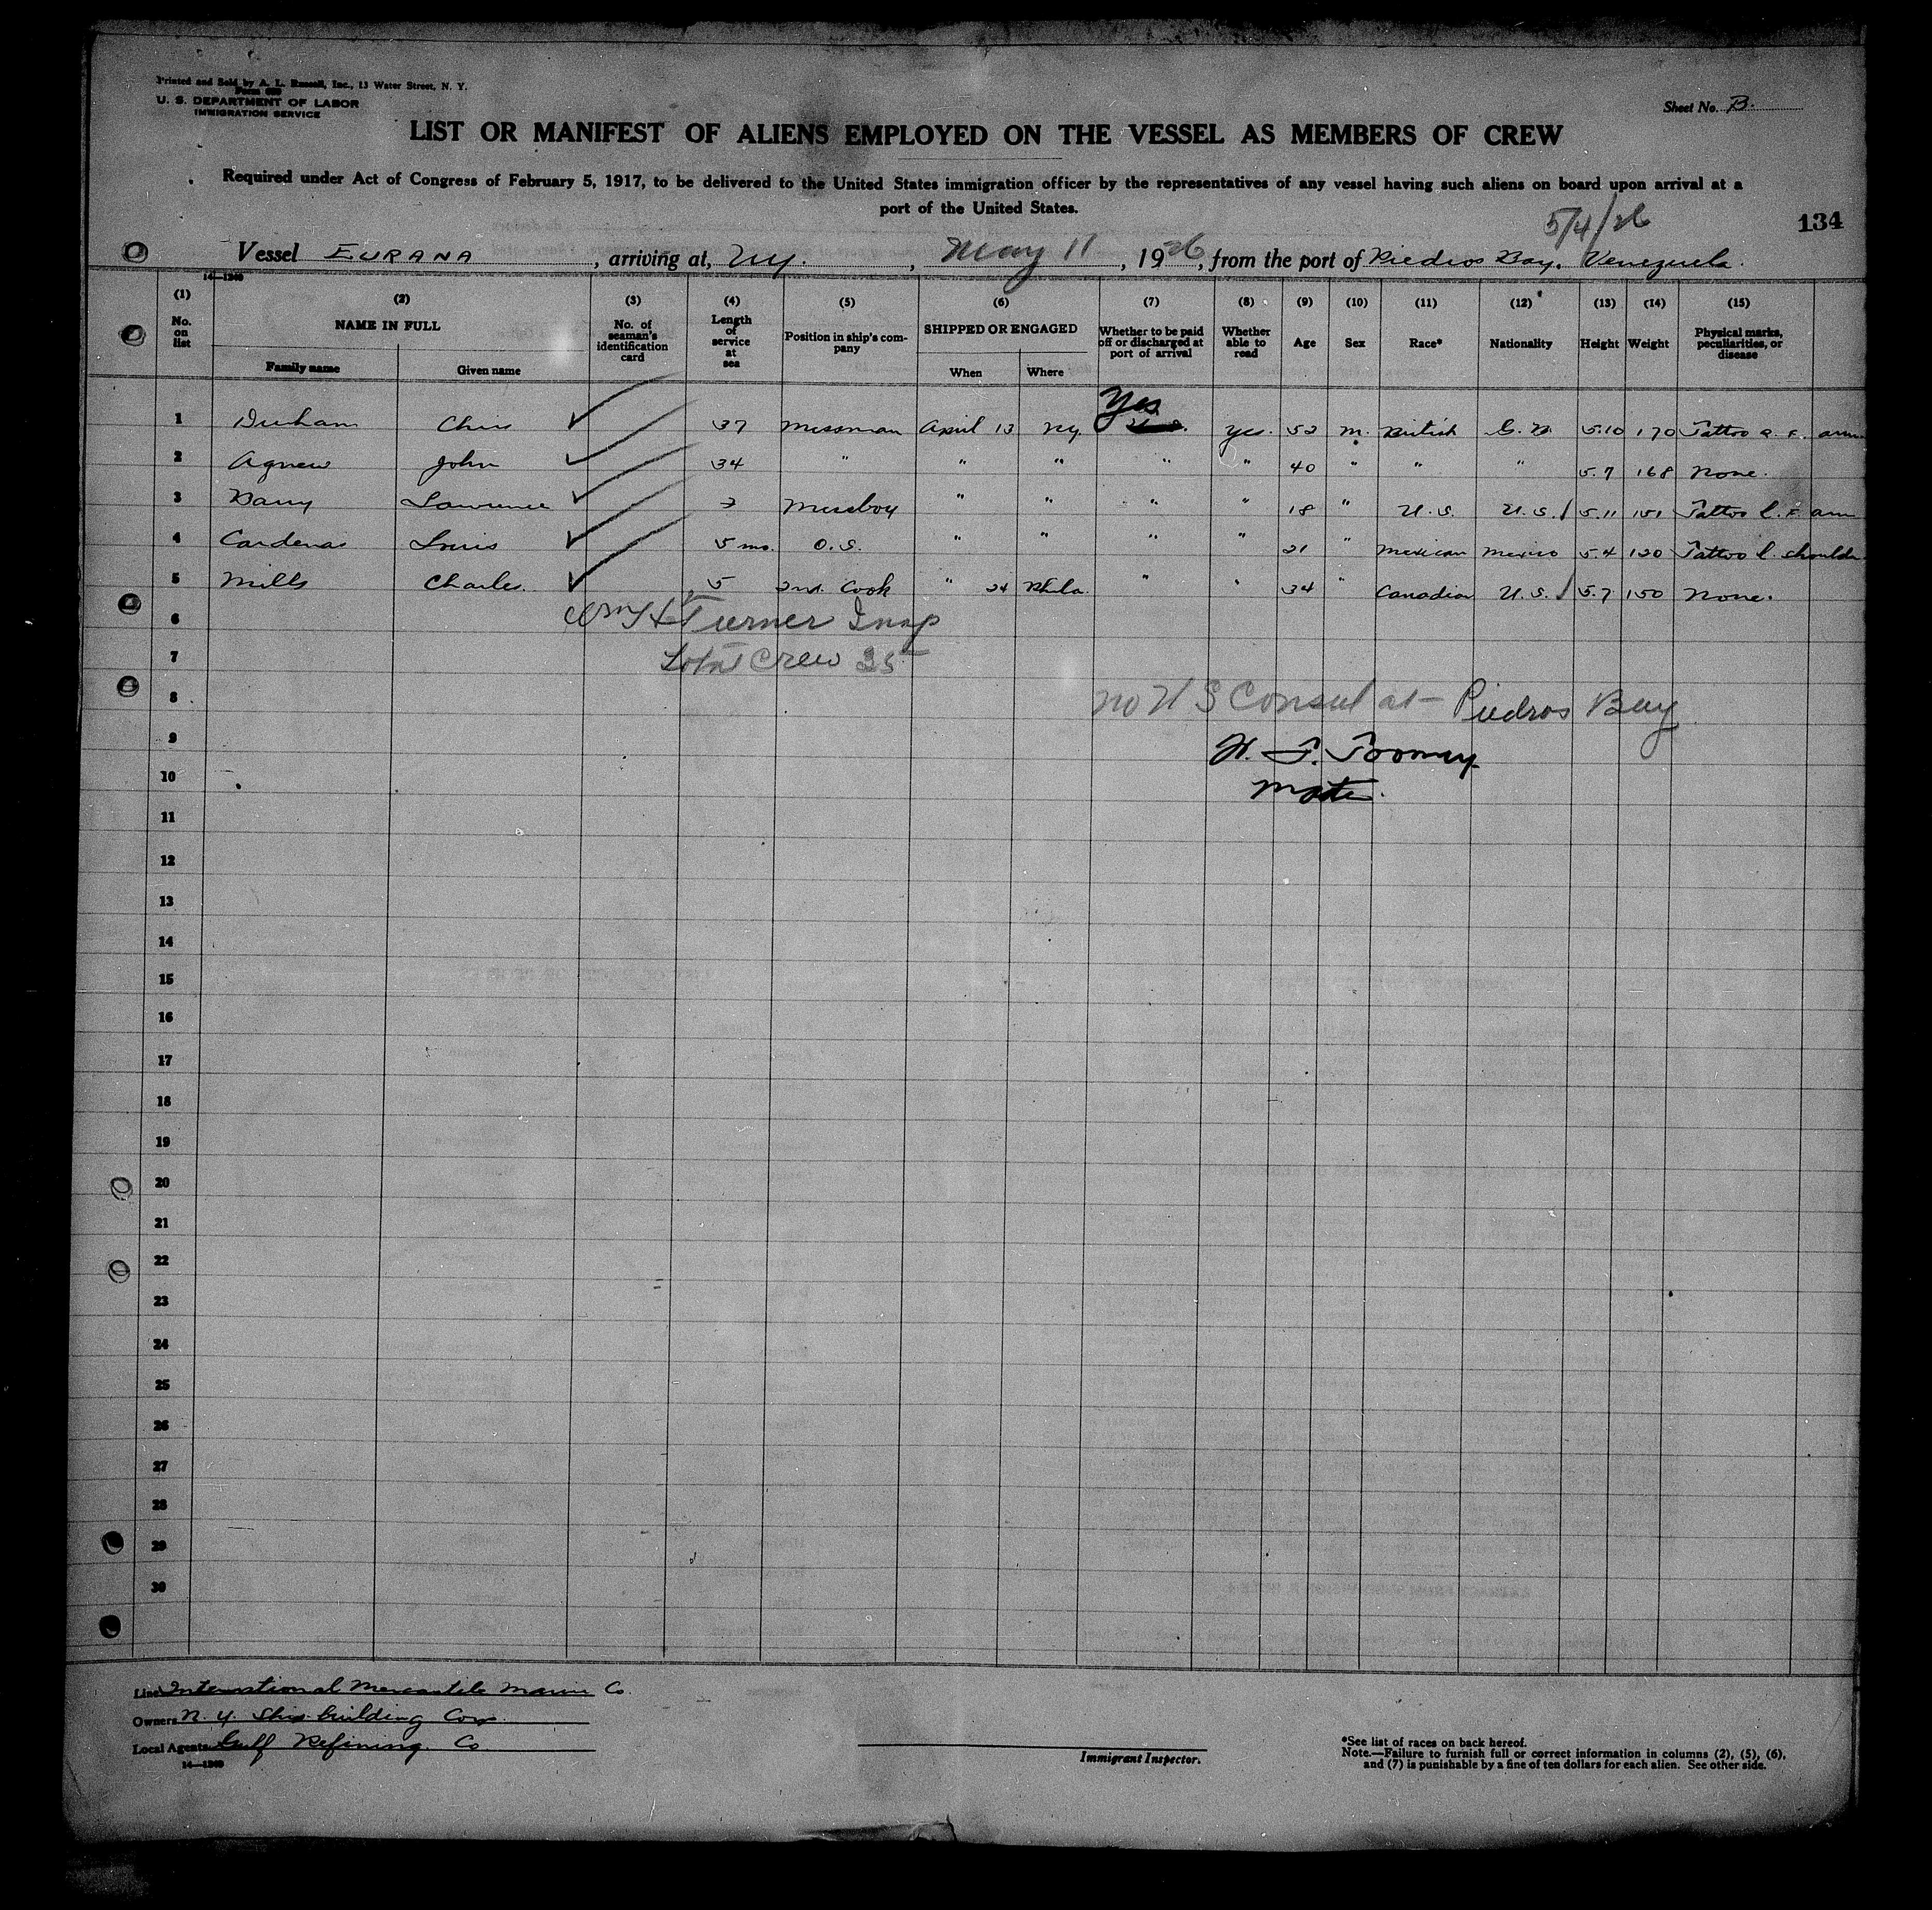 Printed and Sold by A. L. Russell, Inc., 13 Water Street, N. Y.
U. S. DEPARTMENT OF LABOR
IMMIGRATION SERVICE
Sheet No. B.
LIST OR MANIFEST OF ALIENS EMPLOYED ON THE VESSEL AS MEMBERS OF CREW
Required under Act of Congress of February 5, 1917, to be delivered to the United States immigration officer by the representatives of any vessel having such aliens on board upon arrival at a
port of the United States.
5/4/26
134
Vessel EURANA, arriving at, N.Y., May 11, 1926, from the port of Piedros Bay, Venezuela.
14—1240
(1) (2) (3) (4) (5) (6) (7) (8) (9) (10) (11) (12) (13) (14) (15)
No. on list NAME IN FULL No. of seaman's identification card Length of service at sea Position in ship's company SHIPPED OR ENGAGED Whether to be paid off or discharged at port of arrival Whether able to read Age Sex Race* Nationality Height Weight Physical marks, peculiarities, or disease
Family name Given name When Where
Yes
1 Durham Chris 37 Messman April 13 N.Y. Yes. 52 m. British G. B. 5.10 170 Tattoo R. F. arm
2 Agnew John 34 " " " " " 40 " " " 5.7 168 None.
3 Barry Lawrence Messboy " " " " 18 " U. S. U. S. 5.11 151 Tattoo L. F. arm
4 Cardenas Louis 5 mo. O. S. " " " " 21 " Mexican Mexico 5.4 120 Tattoo L. shoulder
5 Mills Charles. 5 2nd. Cook " 24 Phila. " " 34 " Canadian U. S. 5.7 150 None.
6 Wm H Turner Insp
7 Total Crew 35
8 No U S Consul at - Piedros Bay
9 H. T. Toomey.
10 Mate.
11
12
13
14
15
16
17
18
19
20
21
22
23
24
25
26
27
28
29
30
Line International Mercantile Marine Co.
Owners N. Y. Ship building Corp.
Local Agents Gulf Refining Co.
14—1240
Immigrant Inspector.
*See list of races on back hereof.
Note.—Failure to furnish full or correct information in columns (2), (5), (6),
and (7) is punishable by a fine of ten dollars for each alien. See other side.